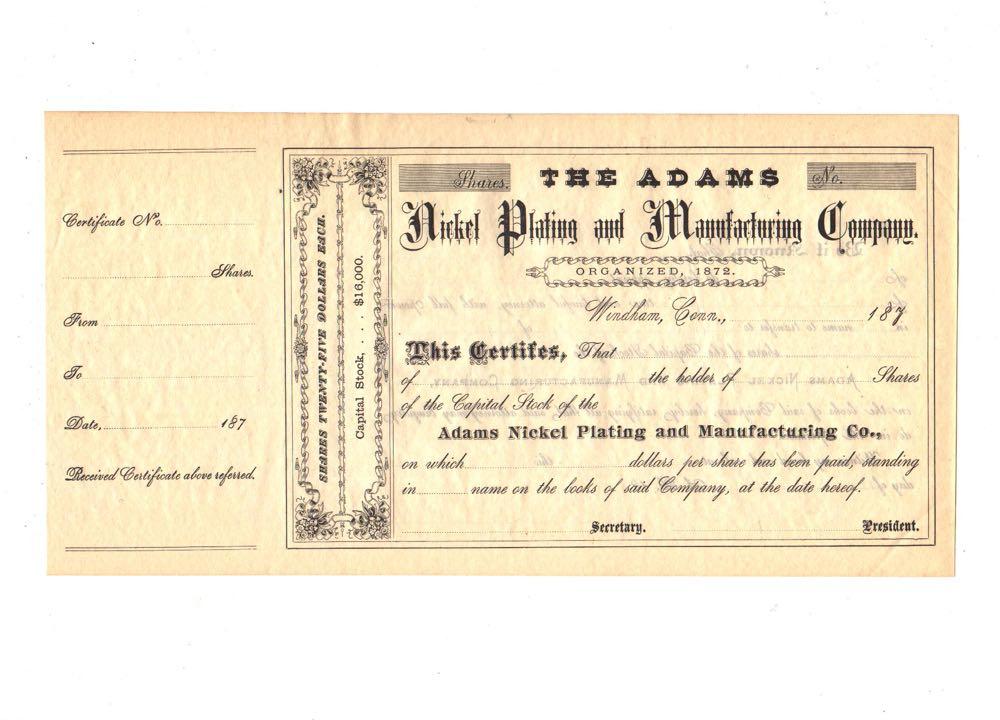 Certificate No.
Shares.
From
To
Date, 187
Received Certificate above referred.
SHARES TWENTY-FIVE DOLLARS EACH.
Capital Stock, . . . $16,000.
Shares. THE ADAMS No.
Nickel Plating and Manufacturing Company.
ORGANIZED, 1872.
Windham, Conn., 187
This Certifes, That
of the holder of Shares
of the Capital Stock of the
Adams Nickel Plating and Manufacturing Co.,
on which dollars per share has been paid, standing
in name on the books of said Company, at the date hereof.
Secretary. President.